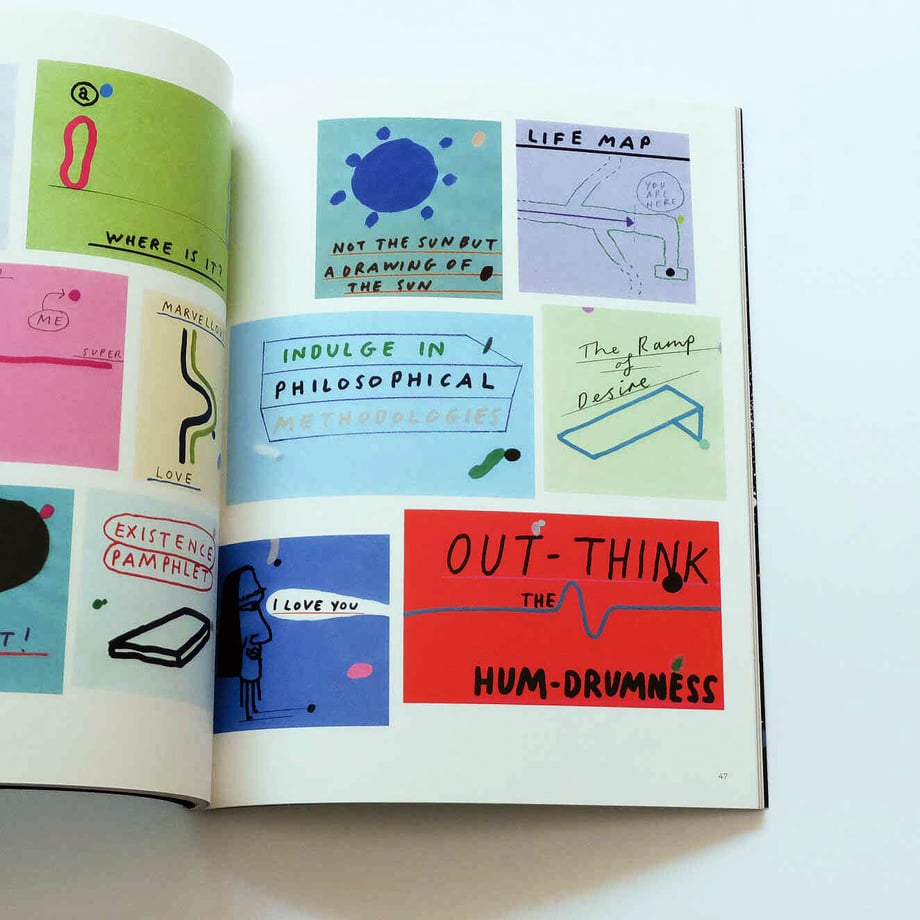 a
WHERE IS IT?
ME
SUPER
MARVELLOU
LOVE
T!
EXISTENCE
PAMPHLET
NOT THE SUN BUT
A DRAWING OF
THE SUN
LIFE MAP
YOU
ARE
HERE
INDULGE IN
PHILOSOPHICAL
METHODOLOGIES
The Ramp
of
Desire
I LOVE YOU
OUT-THINK
THE
HUM-DRUMNESS
47